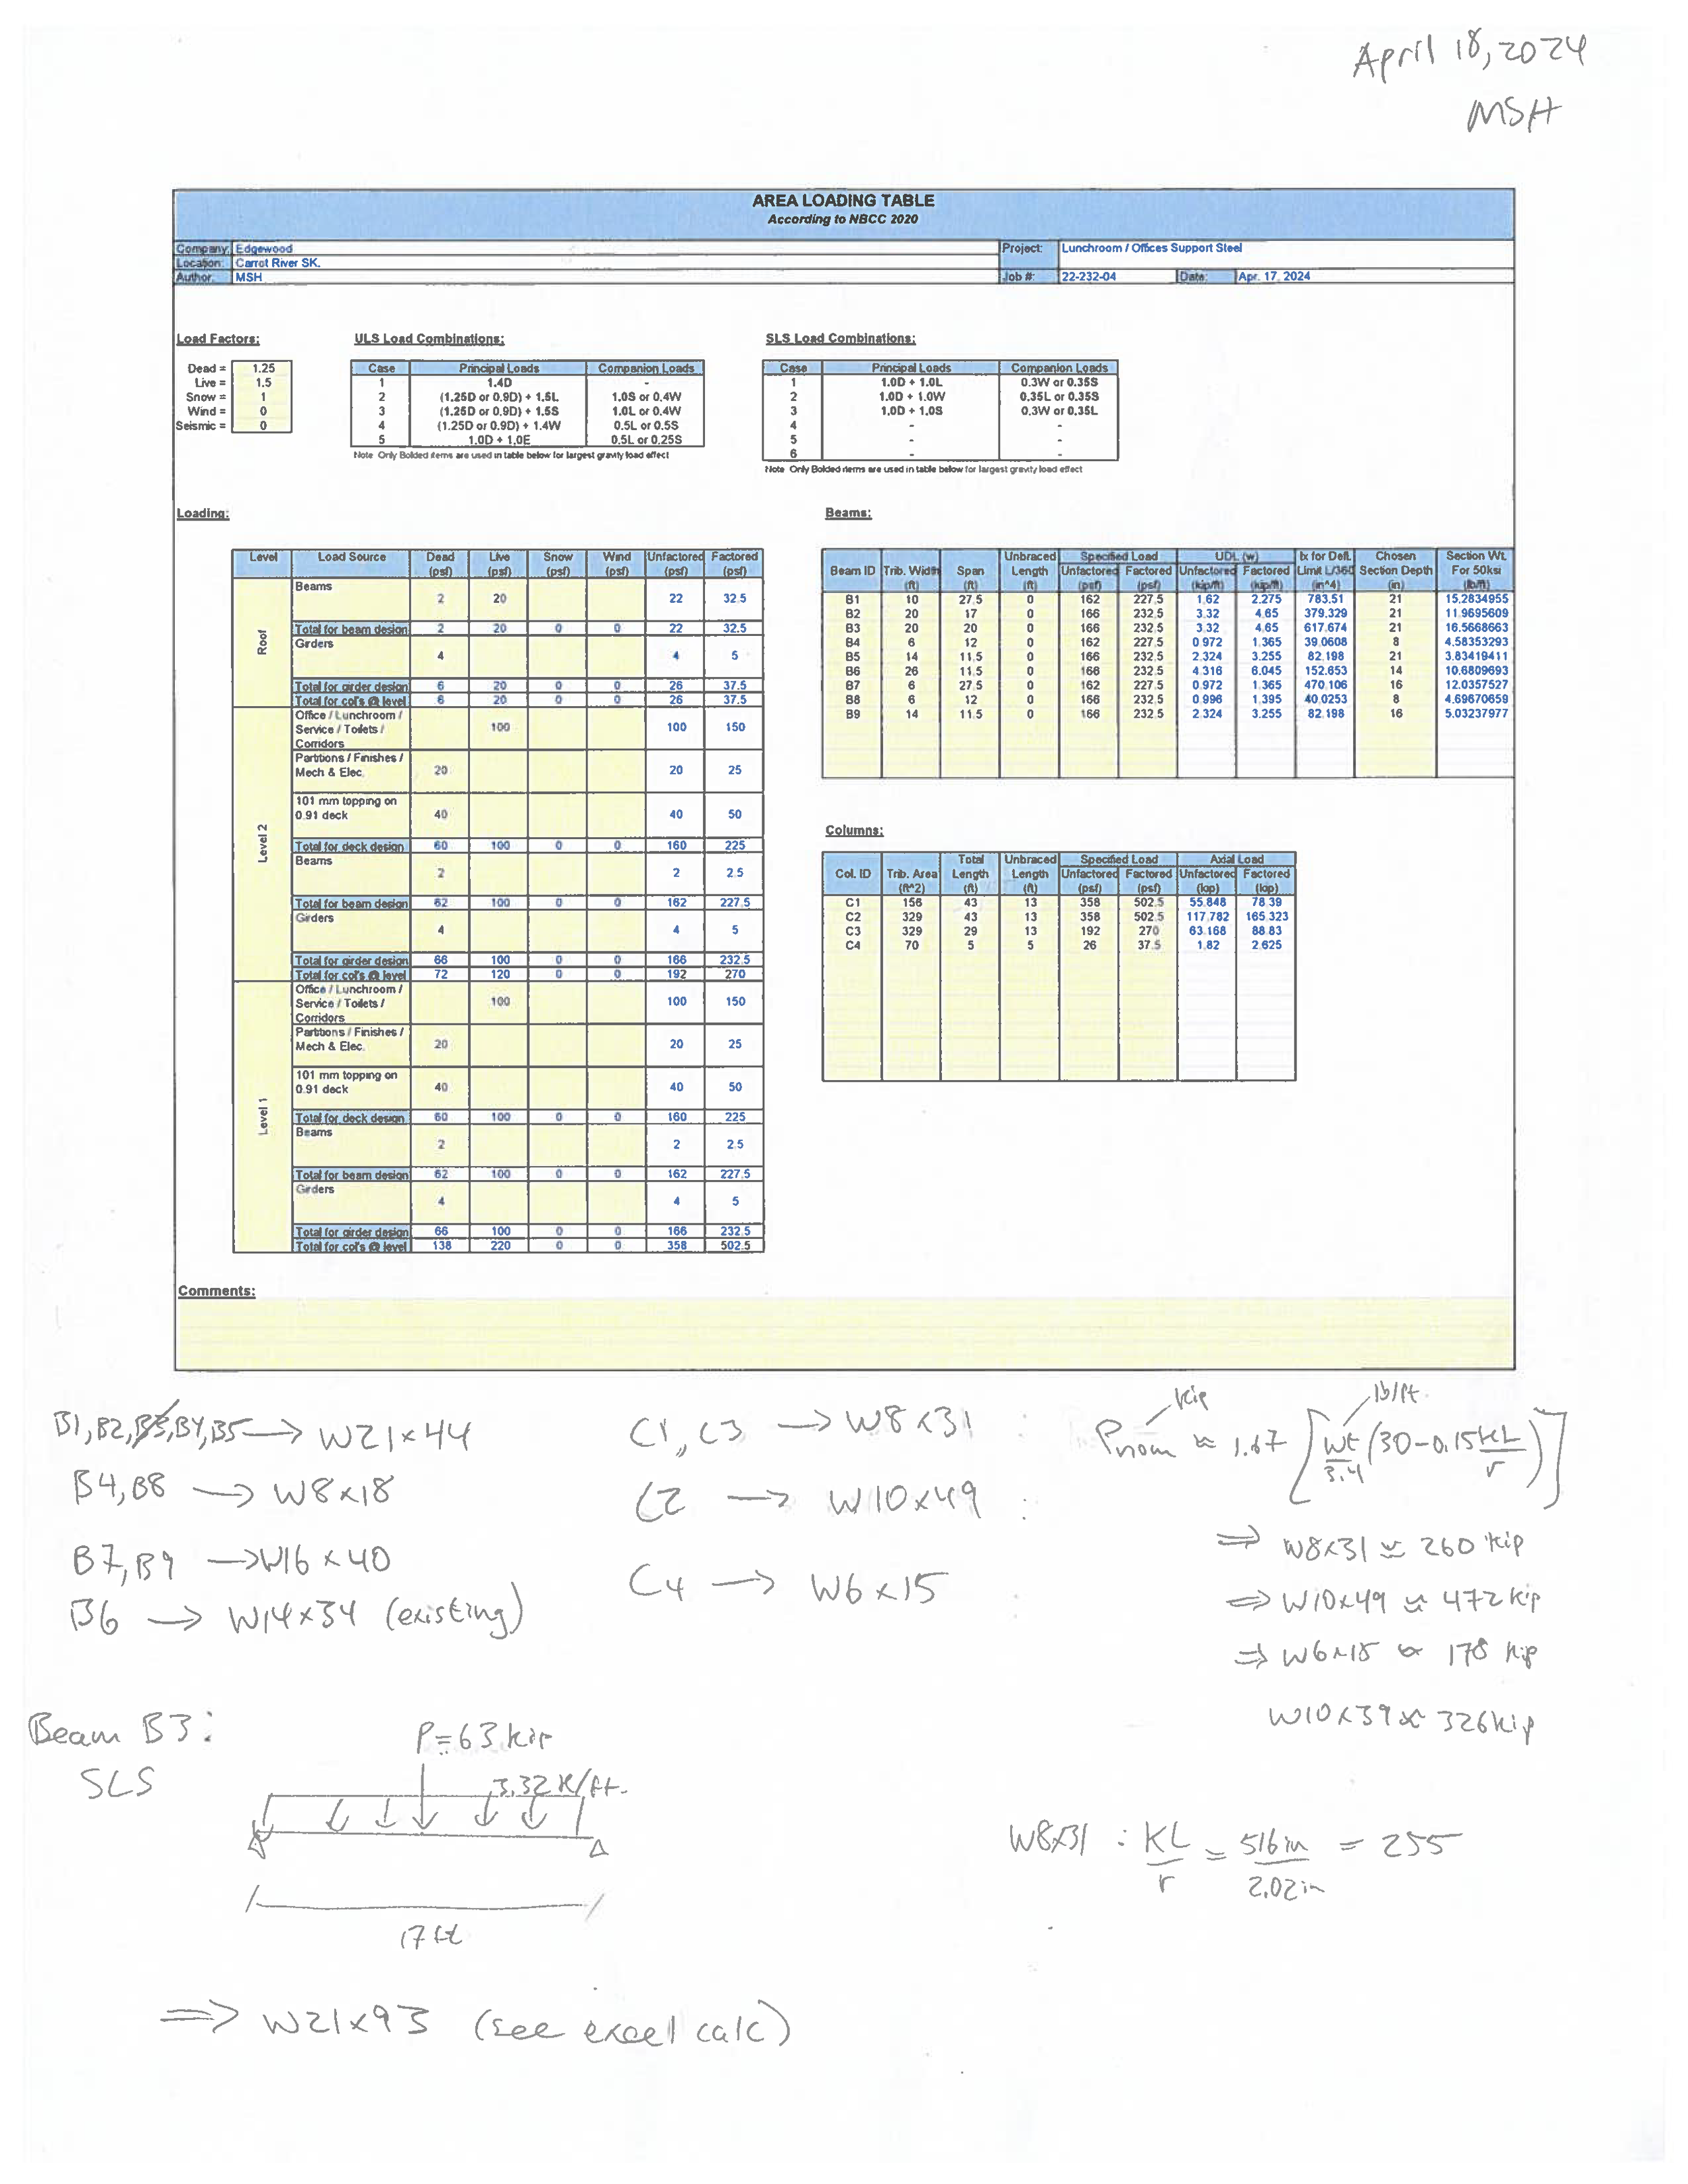 April 18, 2024
MSH
AREA LOADING TABLE
According to NBCC 2020
Company: Edgewood Project: Lunchroom / Offices Support Steel
Location: Carrot River SK.
Author: MSH Job #: 22-232-04 Date: Apr. 17, 2024
Load Factors: ULS Load Combinations: SLS Load Combinations:
Dead = 1.25
Live = 1.5
Snow = 1
Wind = 0
Seismic = 0
Case Principal Loads Companion Loads
1 1.4D -
2 (1.25D or 0.9D) + 1.5L 1.0S or 0.4W
3 (1.25D or 0.9D) + 1.5S 1.0L or 0.4W
4 (1.25D or 0.9D) + 1.4W 0.5L or 0.5S
5 1.0D + 1.0E 0.5L or 0.25S
Note Only Bolded items are used in table below for largest gravity load effect
Case Principal Loads Companion Loads
1 1.0D + 1.0L 0.3W or 0.35S
2 1.0D + 1.0W 0.35L or 0.35S
3 1.0D + 1.0S 0.3W or 0.35L
4 - -
5 - -
6 - -
Note Only Bolded items are used in table below for largest gravity load effect
Loading:
Level Load Source Dead Live Snow Wind Unfactored Factored
(psf) (psf) (psf) (psf) (psf) (psf)
Roof
Beams
2 20 22 32.5
Total for beam design 2 20 0 0 22 32.5
Girders
4 4 5
Total for girder design 6 20 0 0 26 37.5
Total for col's @ level 6 20 0 0 26 37.5
Level 2
Office / Lunchroom /
Service / Toilets / 100 100 150
Corridors
Partitions / Finishes /
Mech & Elec. 20 20 25
101 mm topping on
0.91 deck 40 40 50
Total for deck design 60 100 0 0 160 225
Beams
2 2 2.5
Total for beam design 62 100 0 0 162 227.5
Girders
4 4 5
Total for girder design 66 100 0 0 166 232.5
Total for col's @ level 72 120 0 0 192 270
Level 1
Office / Lunchroom /
Service / Toilets / 100 100 150
Corridors
Partitions / Finishes /
Mech & Elec. 20 20 25
101 mm topping on
0.91 deck 40 40 50
Total for deck design 60 100 0 0 160 225
Beams
2 2 2.5
Total for beam design 62 100 0 0 162 227.5
Girders
4 4 5
Total for girder design 66 100 0 0 166 232.5
Total for col's @ level 138 220 0 0 358 502.5
Beams:
Unbraced Specified Load UDL (w) Ix for Defl. Chosen Section Wt.
Beam ID Trib. Width Span Length Unfactored Factored Unfactored Factored Limit L/360 Section Depth For 50ksi
(ft) (ft) (ft) (psf) (psf) (kip/ft) (kip/ft) (in^4) (in) (lb/ft)
B1 10 27.5 0 162 227.5 1.62 2.275 783.51 21 15.2834955
B2 20 17 0 166 232.5 3.32 4.65 379.329 21 11.9695609
B3 20 20 0 166 232.5 3.32 4.65 617.674 21 16.5668663
B4 6 12 0 162 227.5 0.972 1.365 39.0608 8 4.58353293
B5 14 11.5 0 166 232.5 2.324 3.255 82.198 21 3.83419411
B6 26 11.5 0 166 232.5 4.316 6.045 152.653 14 10.6809693
B7 6 27.5 0 162 227.5 0.972 1.365 470.106 16 12.0357527
B8 6 12 0 166 232.5 0.996 1.395 40.0253 8 4.69670659
B9 14 11.5 0 166 232.5 2.324 3.255 82.198 16 5.03237977
Columns:
Total Unbraced Specified Load Axial Load
Col. ID Trib. Area Length Length Unfactored Factored Unfactored Factored
(ft^2) (ft) (ft) (psf) (psf) (kip) (kip)
C1 156 43 13 358 502.5 55.848 78.39
C2 329 43 13 358 502.5 117.782 165.323
C3 329 29 13 192 270 63.168 88.83
C4 70 5 5 26 37.5 1.82 2.625
Comments:
B1, B2, B3, B4, B5 → W21×44
B4, B8 → W8×18
B7, B9 → W16×40
B6 → W14×34 (existing)
C1, C3 → W8×31 :
C2 → W10×49 :
C4 → W6×15
kip lb/ft.
Pnom ≈ 1.67 [Wt/3.4 (30-0.15 KL/r)]
⇒ W8×31 ≈ 260 kip
⇒ W10×49 ≈ 472 kip
⇒ W6×15 ≈ 178 kip
W10×39 ≈ 326 kip
Beam B3:
SLS
P=63 kip
3.32 K/ft.
17 ft
⇒ W21×93 (see excel calc)
W8×31 : KL/r = 516in/2.02in = 255